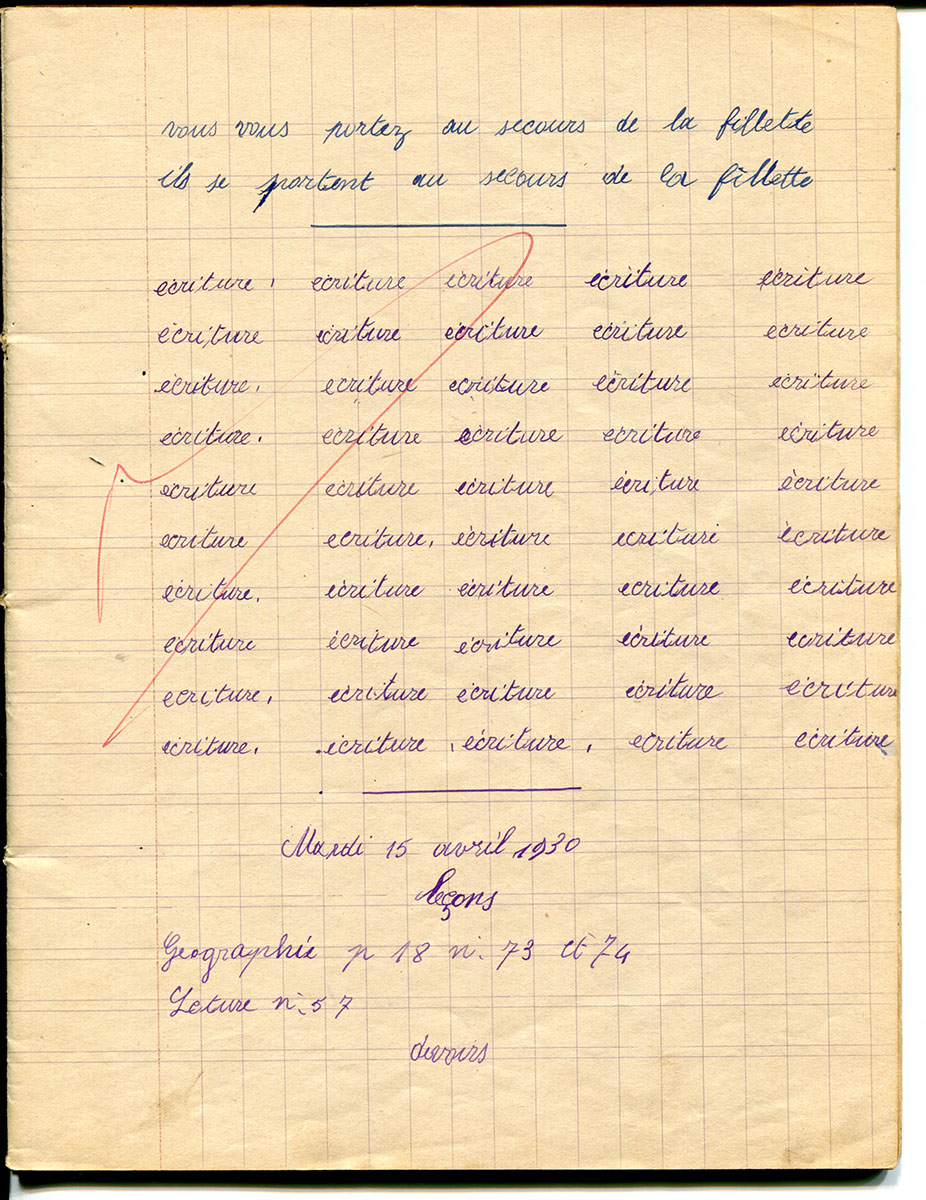 vous vous portez au secours de la fillette
ils se portent au secours de la fillette
écriture. écriture écriture écriture écriture
écriture écriture écriture écriture écriture
écriture. écriture écriture écriture écriture
écriture. écriture écriture écriture écriture
écriture écriture écriture écriture écriture
écriture écriture. écriture écriture écriture
écriture. écriture écriture écriture écriture
écriture écriture écriture écriture écriture
écriture. écriture écriture écriture écriture
écriture. écriture. écriture. écriture écriture
Mardi 15 avril 1930
leçons
Geographie p 18 n. 73 et 74
Lecture n. 57
devoirs